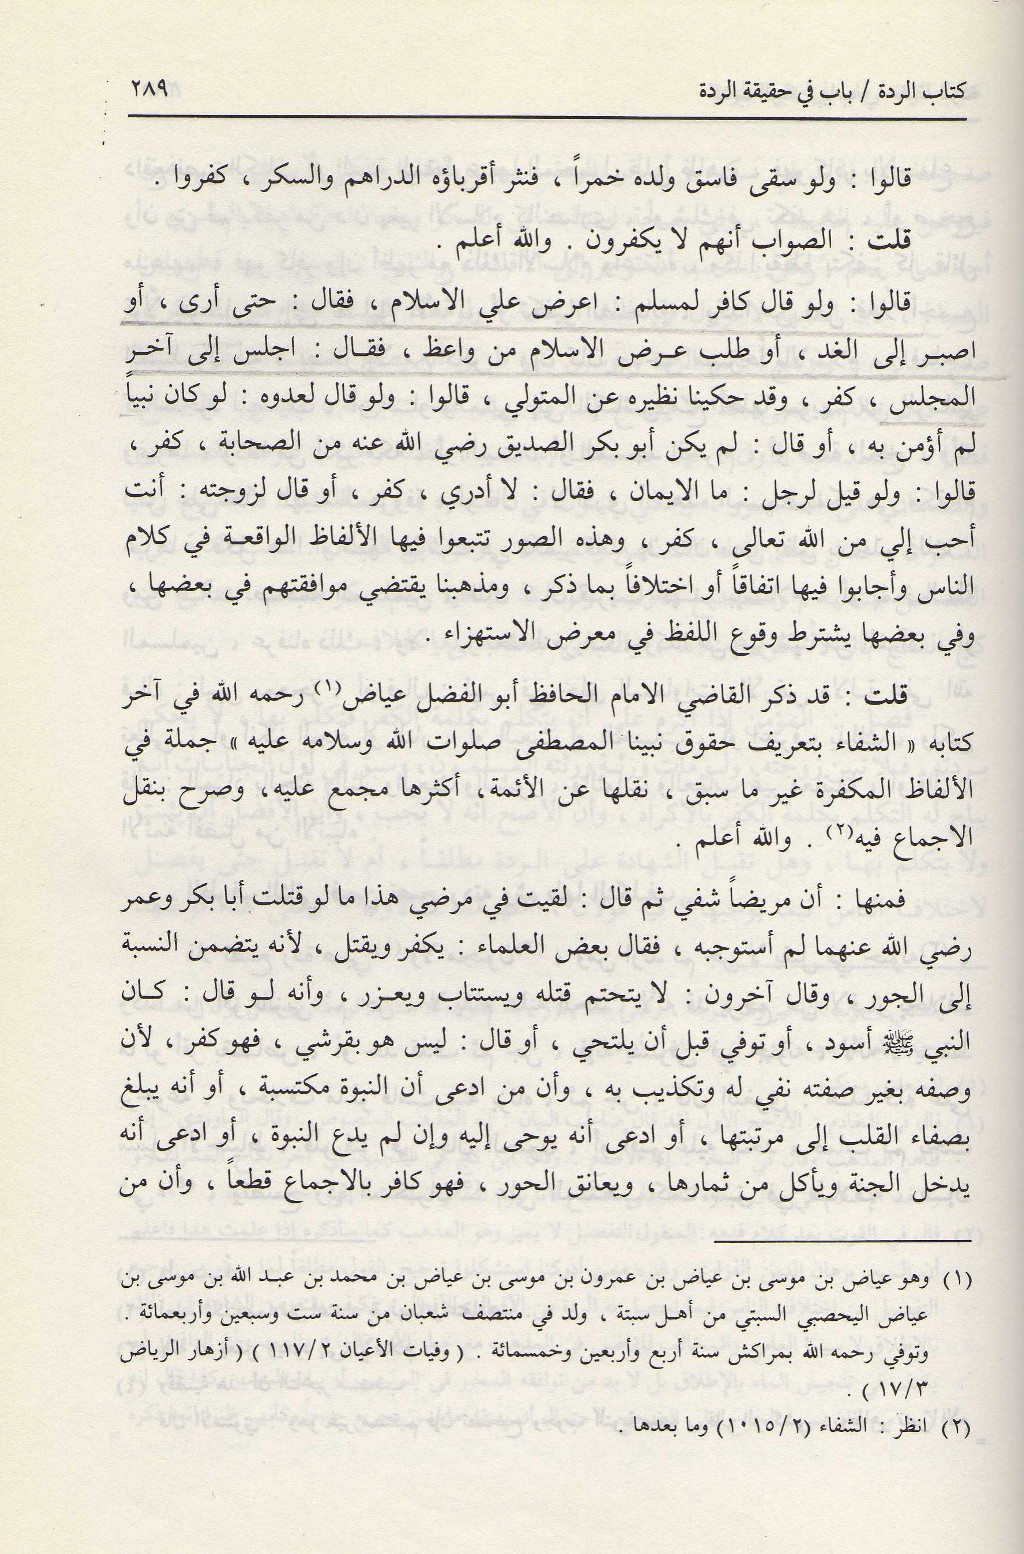 كتاب الردة / باب في حقيقة الردة ٢٨٩
قالوا : ولو سقى فاسق ولده خمراً ، فنثر أقرباؤه الدراهم والسكر ، كفروا .
قلت : الصواب أنهم لا يكفرون . والله أعلم .
قالوا : ولو قال كافر لمسلم : اعرض علي الاسلام ، فقال : حتى أرى ، أو
اصبـر إلى الغد ، أو طلب عـرض الاسلام من واعظ ، فقـال : اجلس إلى آخـر
المجلس ، كفر ، وقد حكينا نظيره عن المتولي ، قالوا : ولو قال لعدوه : لو كان نبياً
لم أؤمن به ، أو قال : لم يكن أبو بكر الصديق رضي الله عنه من الصحابة ، كفر ،
قالوا : ولو قيل لرجل : ما الايمان ، فقال : لا أدري ، كفر ، أو قال لزوجته : أنت
أحب إلي من الله تعالى ، كفر ، وهذه الصور تتبعوا فيها الألفاظ الواقعـة في كلام
الناس وأجابوا فيها اتفاقاً أو اختلافاً بما ذكر ، ومذهبنا يقتضي موافقتهم في بعضها ،
وفي بعضها يشترط وقوع اللفظ في معرض الاستهزاء .
قلت : قد ذكر القاضي الامام الحافظ أبو الفضل عياض(١) رحمه الله في آخر
كتابه « الشفاء بتعريف حقوق نبينا المصطفى صلوات الله وسلامه عليه » جملة في
الألفاظ المكفرة غير ما سبق ، نقلها عن الأئمة، أكثرها مجمع عليه، وصرح بنقل
الاجماع فيه(٢) . والله أعلم .
فمنها : أن مريضاً شفي ثم قال : لقيت في مرضي هذا ما لو قتلت أبا بكر وعمر
رضي الله عنهما لم أستوجبه ، فقال بعض العلماء : يكفر ويقتل ، لأنه يتضمن النسبة
إلى الجور ، وقال آخرون : لا يتحتم قتله ويستتاب ويعـزر ، وأنه لـو قال : كـان
النبي ﷺ أسود ، أو توفي قبل أن يلتحي ، أو قال : ليس هو بقرشي ، فهو كفر ، لأن
وصفه بغير صفته نفي له وتكذيب به ، وأن من ادعى أن النبوة مكتسبة ، أو أنه يبلغ
بصفاء القلب إلى مرتبتها ، أو ادعى أنه يوحى إليه وإن لم يدع النبوة ، أو ادعى أنه
يدخل الجنة ويأكل من ثمارها ، ويعانق الحور ، فهو كافر بالاجماع قطعاً ، وأن من
(١) وهو عياض بن موسى بن عياض بن عمرون بن موسى بن عياض بن محمد بن عبـد الله بن موسى بن
عياض اليحصبي السبتي من أهـل سبتة ، ولد في منتصف شعبان من سنة ست وسبعين وأربعمائة .
وتوفي رحمه الله بمراكش سنة أربع وأربعين وخمسمائة . ( وفيات الأعيان ١١٧/٢ ) ( أزهار الرياض
١٧/٣ ) .
(٢) انظر : الشفاء (١٠١٥/٢) وما بعدها .